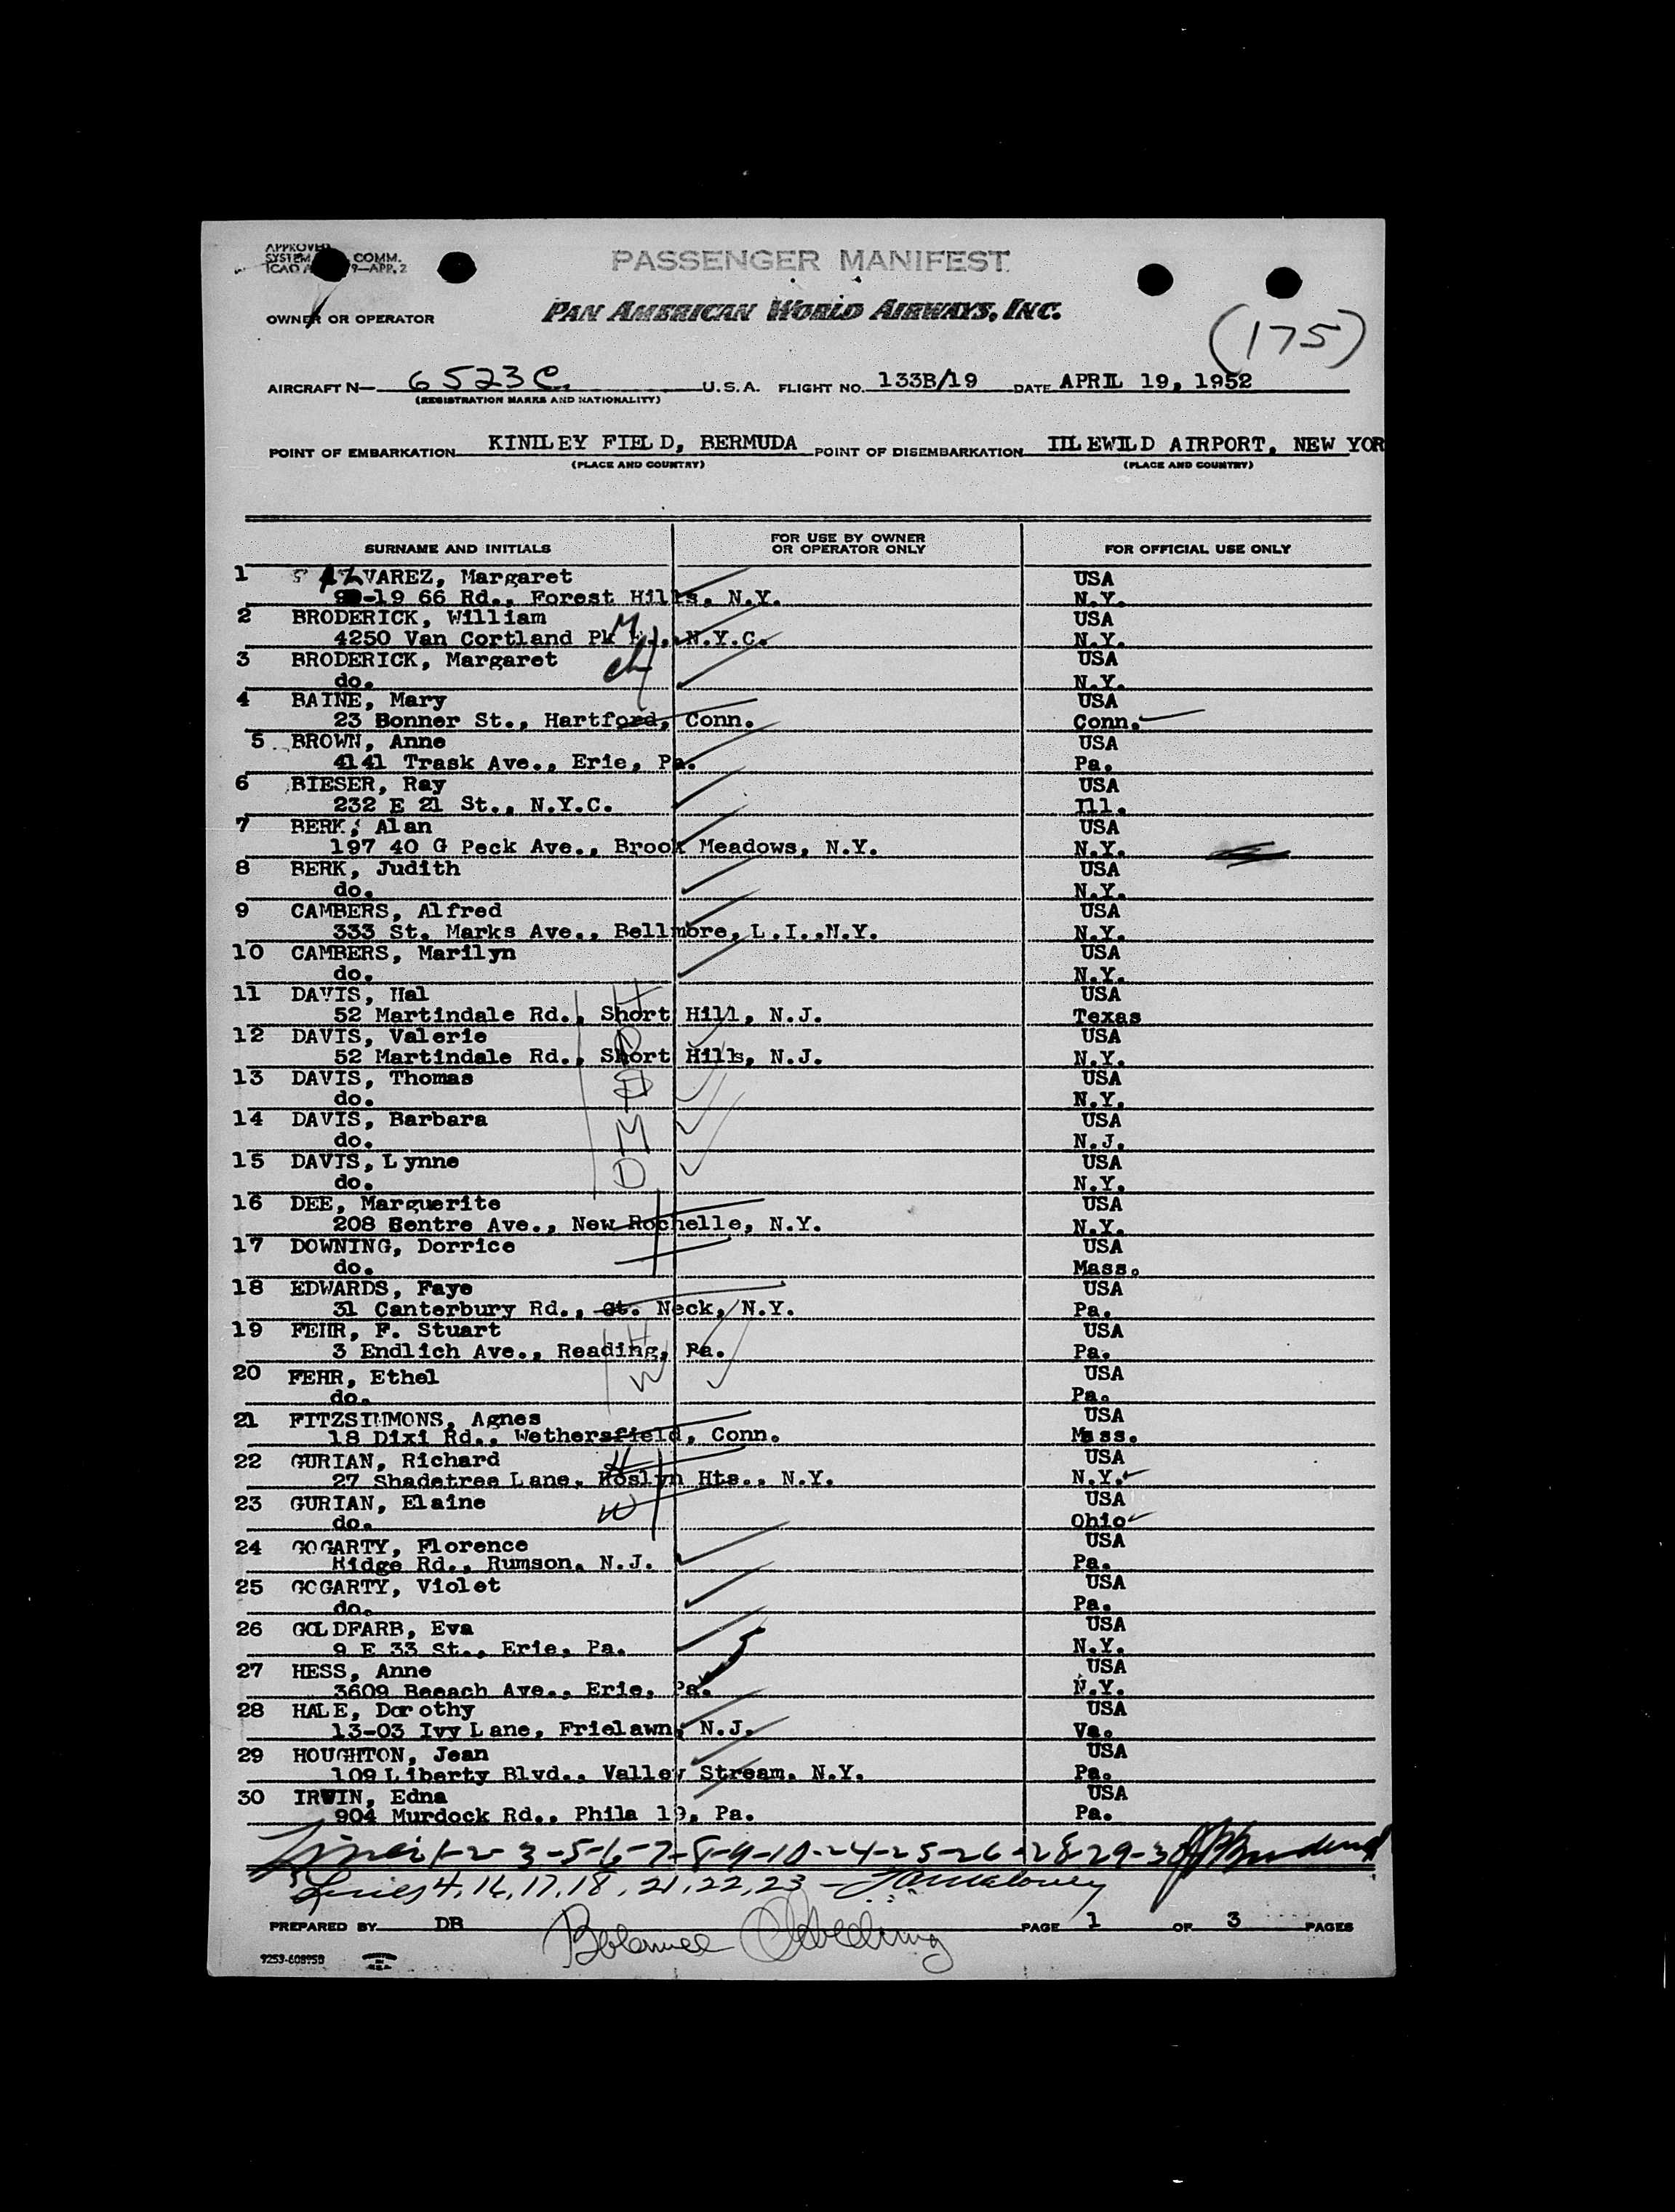 APPROVE
SYSTEM COMM.
ICAO A 9—APP. 2
PASSENGER MANIFEST
OWNER OR OPERATOR PAN AMERICAN WORLD AIRWAYS, INC.
(175)
AIRCRAFT N— 6523C. U.S.A. FLIGHT NO. 133B/19 DATE APRIL 19, 1952
(REGISTRATION MARKS AND NATIONALITY)
POINT OF EMBARKATION KINDLEY FIELD, BERMUDA POINT OF DISEMBARKATION IDLEWILD AIRPORT, NEW YOR
(PLACE AND COUNTRY) (PLACE AND COUNTRY)
SURNAME AND INITIALS FOR USE BY OWNER OR OPERATOR ONLY FOR OFFICIAL USE ONLY
1 ALVAREZ, Margaret USA
-19 66 Rd., Forest Hills, N.Y. N.Y.
2 BRODERICK, William M USA
4250 Van Cortland Pk N.Y.C. N.Y.
3 BRODERICK, Margaret USA
do. ch N.Y.
4 BAINE, Mary USA
23 Bonner St., Hartford, Conn. Conn.
5 BROWN, Anne USA
4141 Trask Ave., Erie, Pa. Pa.
6 BIESER, Ray USA
232 E 21 St., N.Y.C. Ill.
7 BERK, Alan USA
197 40 G Peck Ave., Brook Meadows, N.Y. N.Y.
8 BERK, Judith USA
do. N.Y.
9 CAMBERS, Alfred USA
333 St. Marks Ave., Bellmore, L.I.,N.Y. N.Y.
10 CAMBERS, Marilyn USA
do. N.Y.
11 DAVIS, Hal H USA
52 Martindale Rd., Short Hill, N.J. Texas
12 DAVIS, Valerie D USA
52 Martindale Rd., Short Hills, N.J. N.Y.
13 DAVIS, Thomas USA
do. N.Y.
14 DAVIS, Barbara USA
do. M N.J.
15 DAVIS, Lynne USA
do. D N.Y.
16 DEE, Marguerite USA
208 Centre Ave., New Rochelle, N.Y. N.Y.
17 DOWNING, Dorrice USA
do. Mass.
18 EDWARDS, Faye USA
31 Canterbury Rd., Gt. Neck, N.Y. Pa.
19 FEHR, F. Stuart H USA
3 Endlich Ave., Reading, Pa. Pa.
20 FEHR, Ethel W USA
do. Pa.
21 FITZSIMMONS, Agnes USA
18 Dixi Rd., Wethersfield, Conn. Mass.
22 GURIAN, Richard H USA
27 Shadetree Lane, Roslyn Hts., N.Y. N.Y.
23 GURIAN, Elaine W USA
do. Ohio
24 GOGARTY, Florence USA
Ridge Rd., Rumson, N.J. Pa.
25 GOGARTY, Violet USA
do. Pa.
26 GOLDFARB, Eva USA
9 E 33 St., Erie, Pa. N.Y.
27 HESS, Anne USA
3609 Beeach Ave., Erie, Pa. N.Y.
28 HALE, Dorothy USA
13-03 Ivy Lane, Frielawn, N.J. Va.
29 HOUGHTON, Jean USA
109 Liberty Blvd., Valley Stream, N.Y. Pa.
30 IRWIN, Edna USA
904 Murdock Rd., Phila 19, Pa. Pa.
Lines 1-2-3-5-6-7-8-9-10-24-25-26-28-29-30
Lines 4, 16, 17, 18, 21, 22, 23 -
PREPARED BY DB PAGE 1 OF 3 PAGES